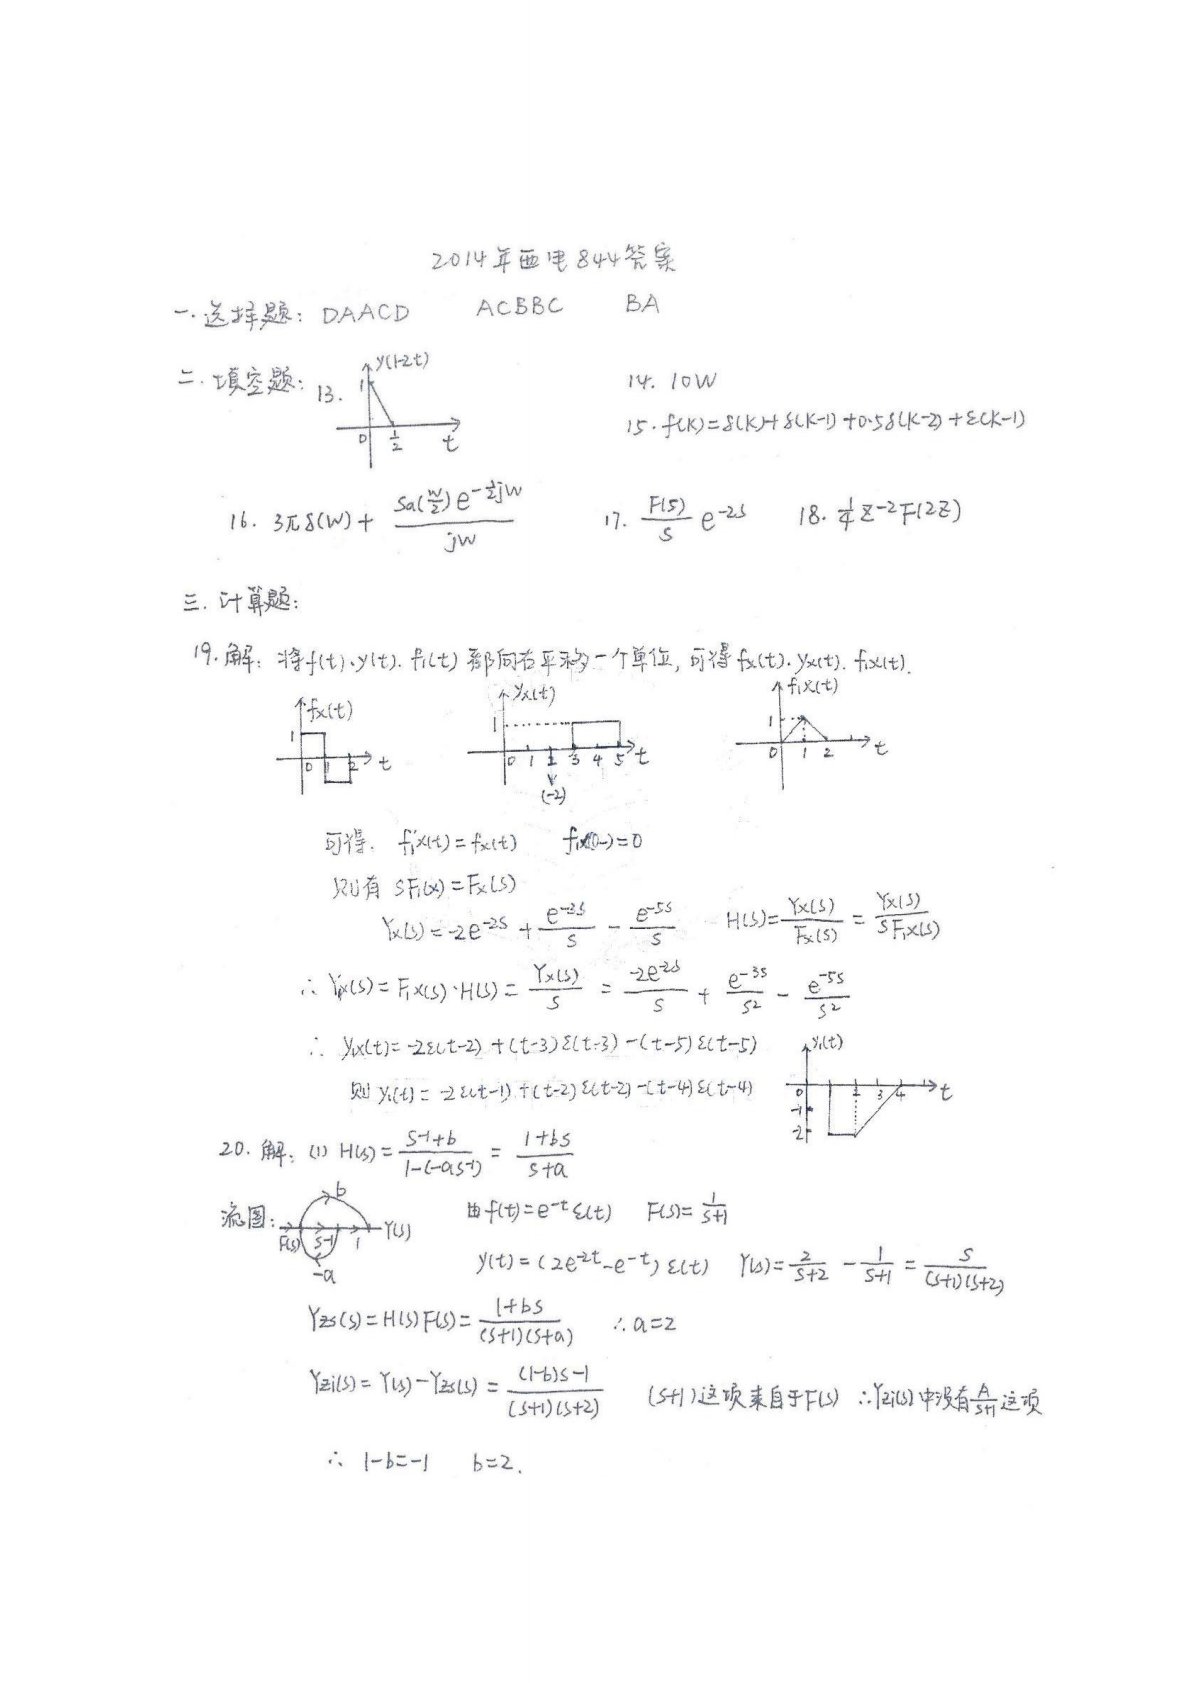 2014年西电844答案
一.选择题: DAACD ACBBC BA
二.填空题: 13. y(1-2t) 1 0 1/2 t 14. 10W
15. f(k)=δ(k)+δ(k-1)+0.5δ(k-2)+ε(k-1)
16. 3πδ(w)+ Sa(w/2)e^{-½jw}/jw 17. F(s)/s e^{-2s} 18. ¼z^{-2}F(2z)
三.计算题:
19.解: 将f(t).y(t).f₁(t)都向右平移一个单位,可得fx(t).yx(t).f₁x(t).
fx(t) 1 0 1 2 t yx(t) 1 0 1 2 3 4 5 t (-2) f₁x(t) 1 0 1 2 t
可得. f₁'x(t)=fx(t) f₁x(0-)=0
则有 SF₁(x)=Fx(s)
Yx(s)=-2e^{-2s}+e^{-3s}/s-e^{-5s}/s H(s)=Yx(s)/Fx(s)=Yx(s)/SF₁x(s)
∴ Y₁x(s)=F₁x(s)·H(s)=Yx(s)/s=-2e^{-2s}/s+e^{-3s}/s²-e^{-5s}/s²
∴ y₁x(t)=-2ε(t-2)+(t-3)ε(t-3)-(t-5)ε(t-5)
则 y₁(t)=-2ε(t-1)+(t-2)ε(t-2)-(t-4)ε(t-4) y₁(t) 0 2 3 4 t -1 -2
20.解: (1) H(s)=(s^{-1}+b)/(1-(-as^{-1}))=(1+bs)/(s+a)
流图: b F(s) s^{-1} 1 Y(s) -a 由f(t)=e^{-t}ε(t) F(s)=1/(s+1)
y(t)=(2e^{-2t}-e^{-t})ε(t) Y(s)=2/(s+2)-1/(s+1)=s/((s+1)(s+2))
Yzs(s)=H(s)F(s)=(1+bs)/((s+1)(s+a)) ∴a=2
Yzi(s)=Y(s)-Yzs(s)=((1-b)s-1)/((s+1)(s+2)) (s+1)这项来自于F(s) ∴Yzi(s)中没有A/(s+1)这项
∴ 1-b=-1 b=2.